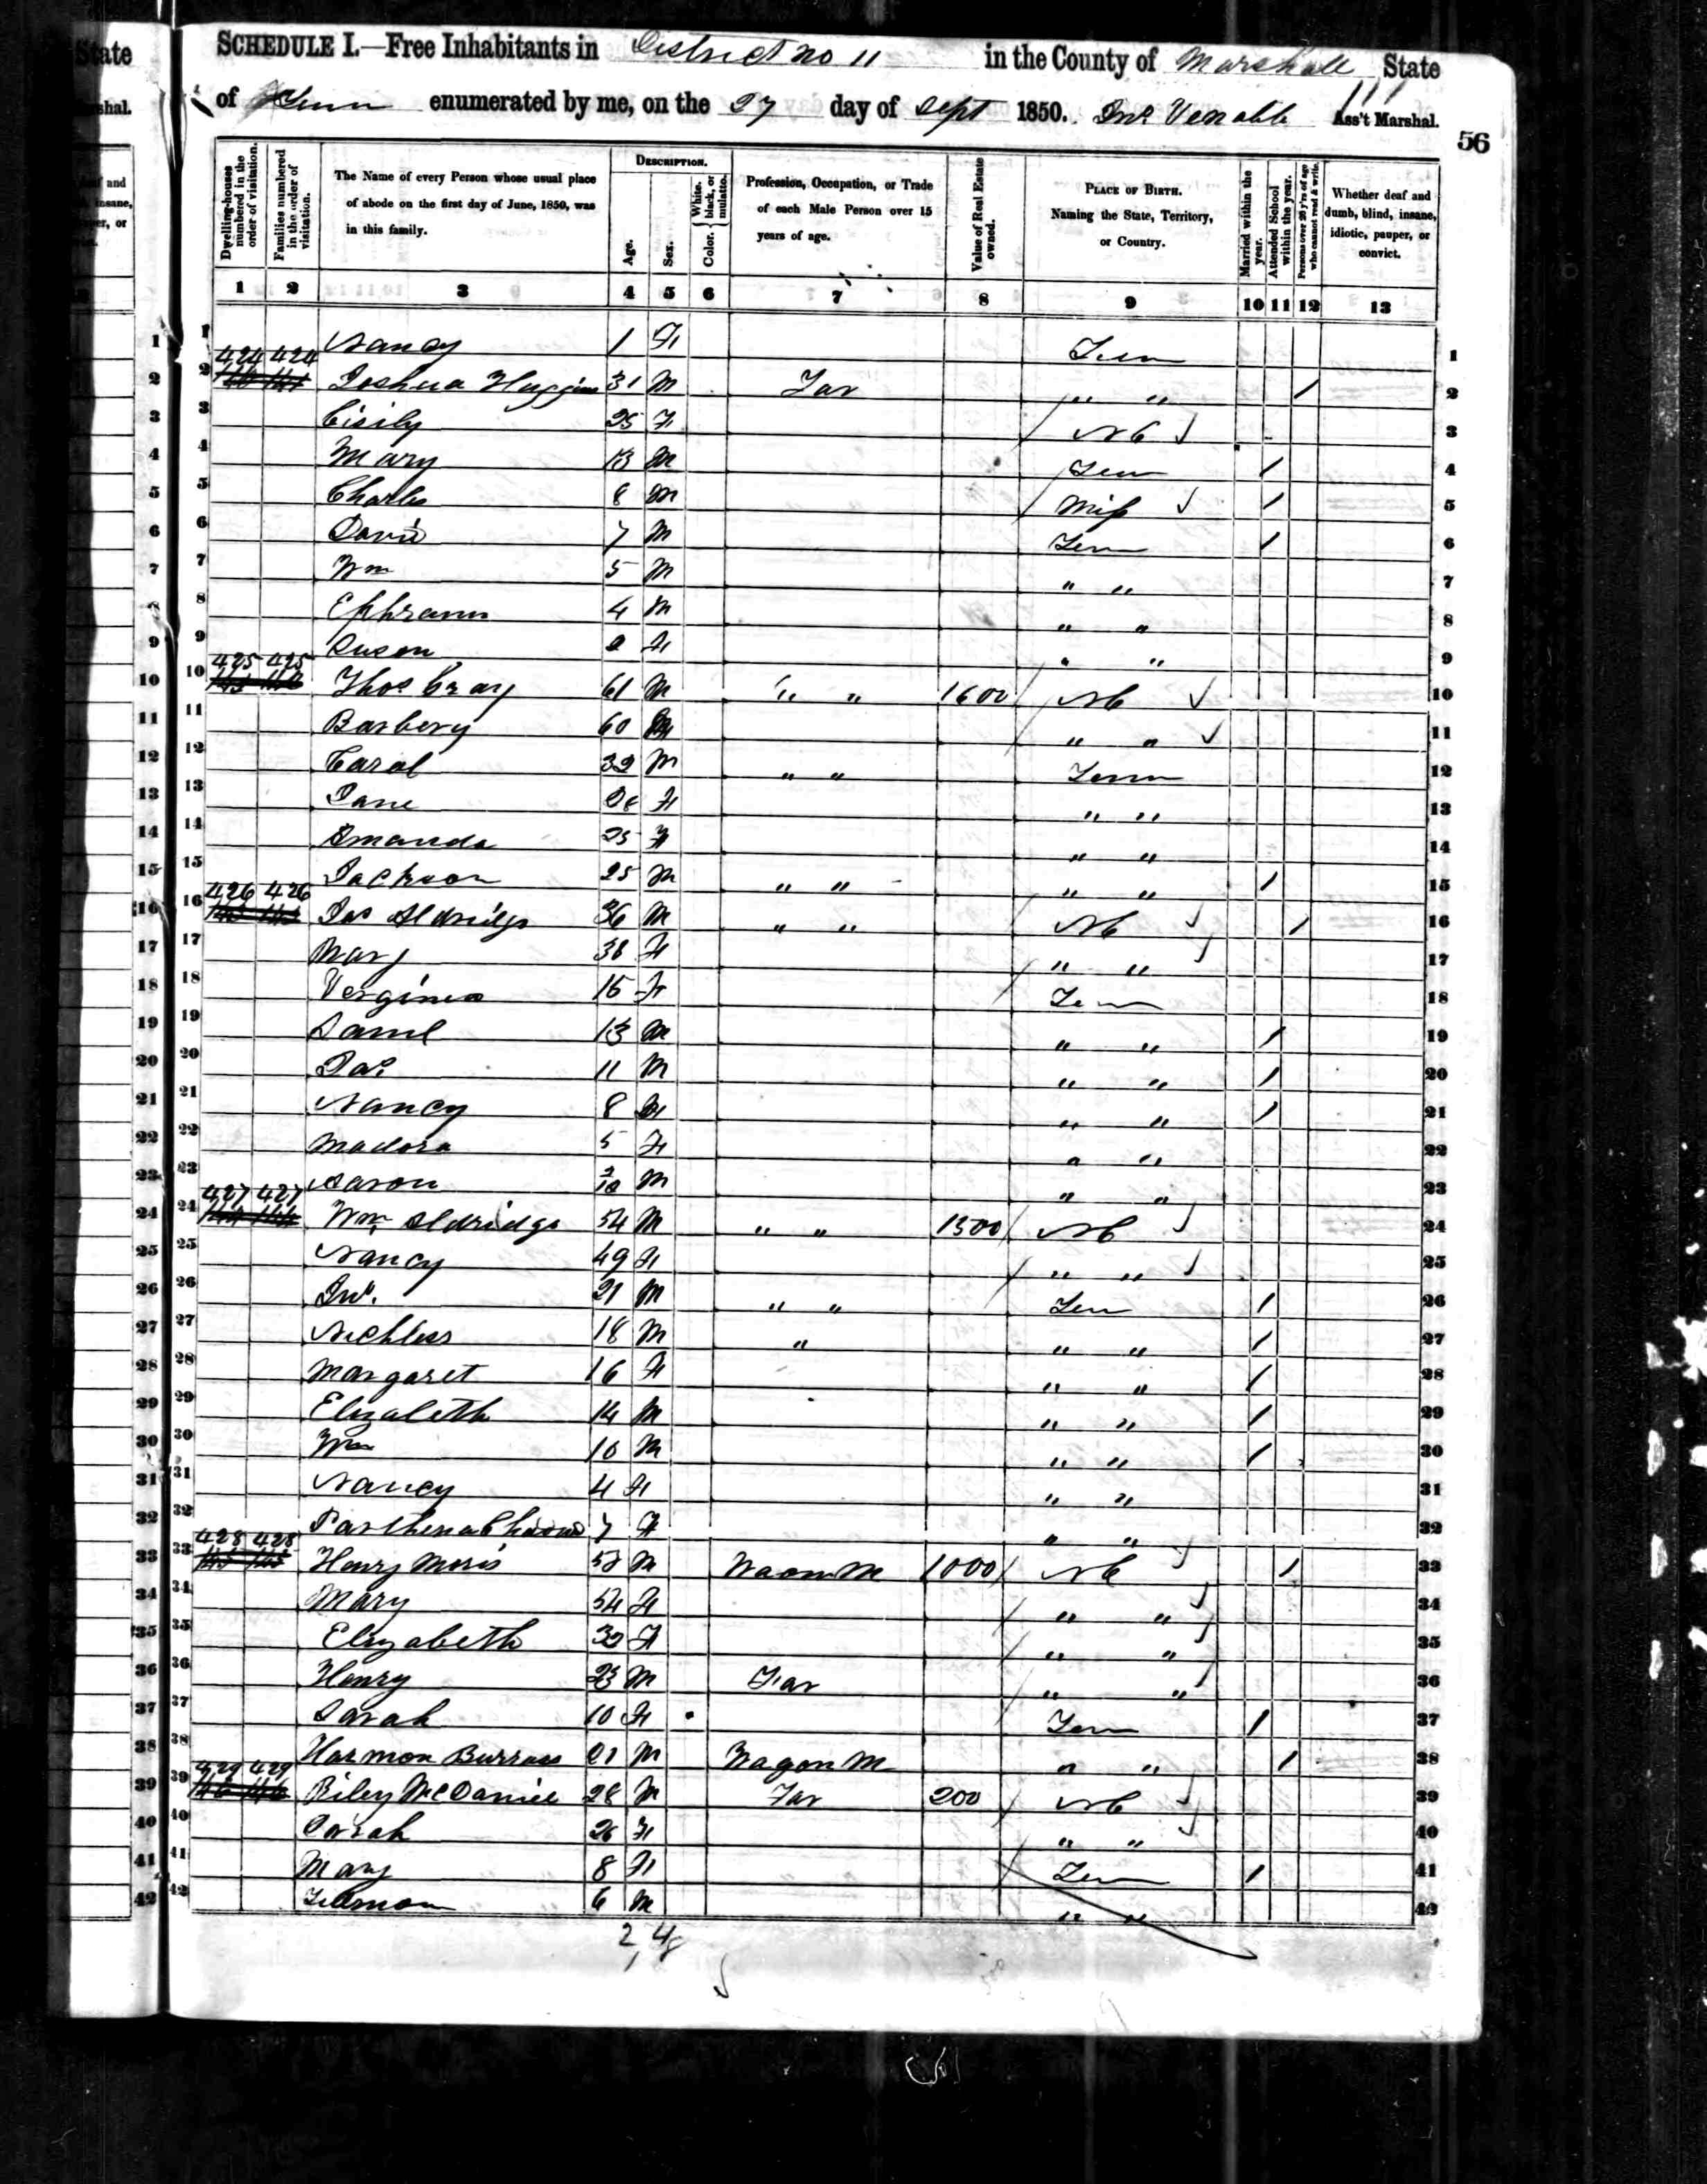 State
SCHEDULE I.—Free Inhabitants in District no 11 in the County of Marshall State
of Tenn enumerated by me, on the 27 day of Sept 1850. Jno Venable Ass't Marshal.
56
Dwelling-houses numbered in the order of visitation.
Families numbered in the order of visitation.
The Name of every Person whose usual place of abode on the first day of June, 1850, was in this family.
DESCRIPTION.
Age.
Sex.
Color. { White, black, or mulatto.
Profession, Occupation, or Trade of each Male Person over 15 years of age.
Value of Real Estate owned.
PLACE OF BIRTH. Naming the State, Territory, or Country.
Married within the year.
Attended School within the year.
Persons over 20 y'rs of age who cannot read & write.
Whether deaf and dumb, blind, insane, idiotic, pauper, or convict.
1 2 3 4 5 6 7 8 9 10 11 12 13
1 Nancy 1 F Tenn 1
2 424 424 Joshua Huggins 31 M Far " " / 2
3 Cisily 25 F NC 3
4 Mary 13 M Tenn / 4
5 Charles 8 M Miss / 5
6 David 7 M Tenn / 6
7 Wm 5 M " " 7
8 Ephraim 4 M " " 8
9 Suson F " " 9
10 425 425 Thos Cray 61 M " " 1600 NC 10
11 Barbery 60 " " 11
12 Carol 32 M " " Tenn 12
13 Jane 28 F " " 13
14 Amanda 25 F " " 14
15 Jackson 25 M " " " " / 15
16 426 426 Jas Aldridge 36 M " " NC / 16
17 Mary 38 F " " 17
18 Verginia 15 F Tenn 18
19 Saml 13 M " " / 19
20 Jas. 11 M " " / 20
21 Nancy 8 F " " / 21
22 Madora 5 F " " 22
23 Aaron M " " 23
24 427 427 Wm Aldridge 54 M " " 1300 NC 24
25 Nancy 49 F " " 25
26 Jno. 21 M " " Tenn / 26
27 Nichlus 18 M " " " / 27
28 Margaret 16 F " " / 28
29 Elizabeth 14 M " " / 29
30 Wm 10 M " " / 30
31 Nancy 4 F " " 31
32 Parthena 7 F " " 32
33 428 428 Henry Moris 52 M Waon M 1000 NC / 33
34 Mary 54 F " " 34
35 Elizabeth 30 F " " 35
36 Henry 23 M Far " " 36
37 Sarah 10 F Tenn / 37
38 Harmon Burrass 21 M Wagon M " " / 38
39 429 429 Riley McDaniel 28 M Far 200 NC 39
40 Sarah 26 F " " 40
41 Mary 8 F Tenn / 41
42 Tilmon 6 M " " 42